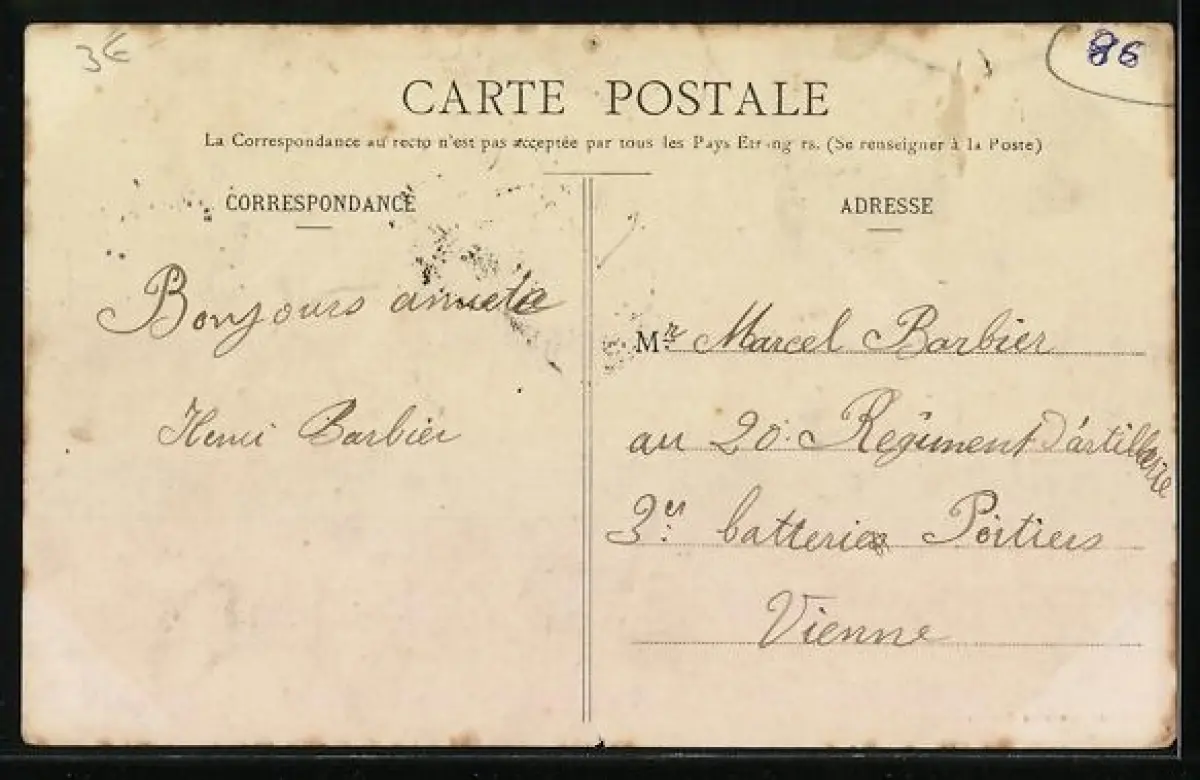 3€
86
CARTE POSTALE
La Correspondance au recto n'est pas acceptée par tous les Pays Etrangers. (Se renseigner à la Poste)
CORRESPONDANCE
Bonjours
Henri Barbier
ADRESSE
Mr Marcel Barbier
au 20. Regiment D'artillerie
3er batterie Poitiers
Vienne